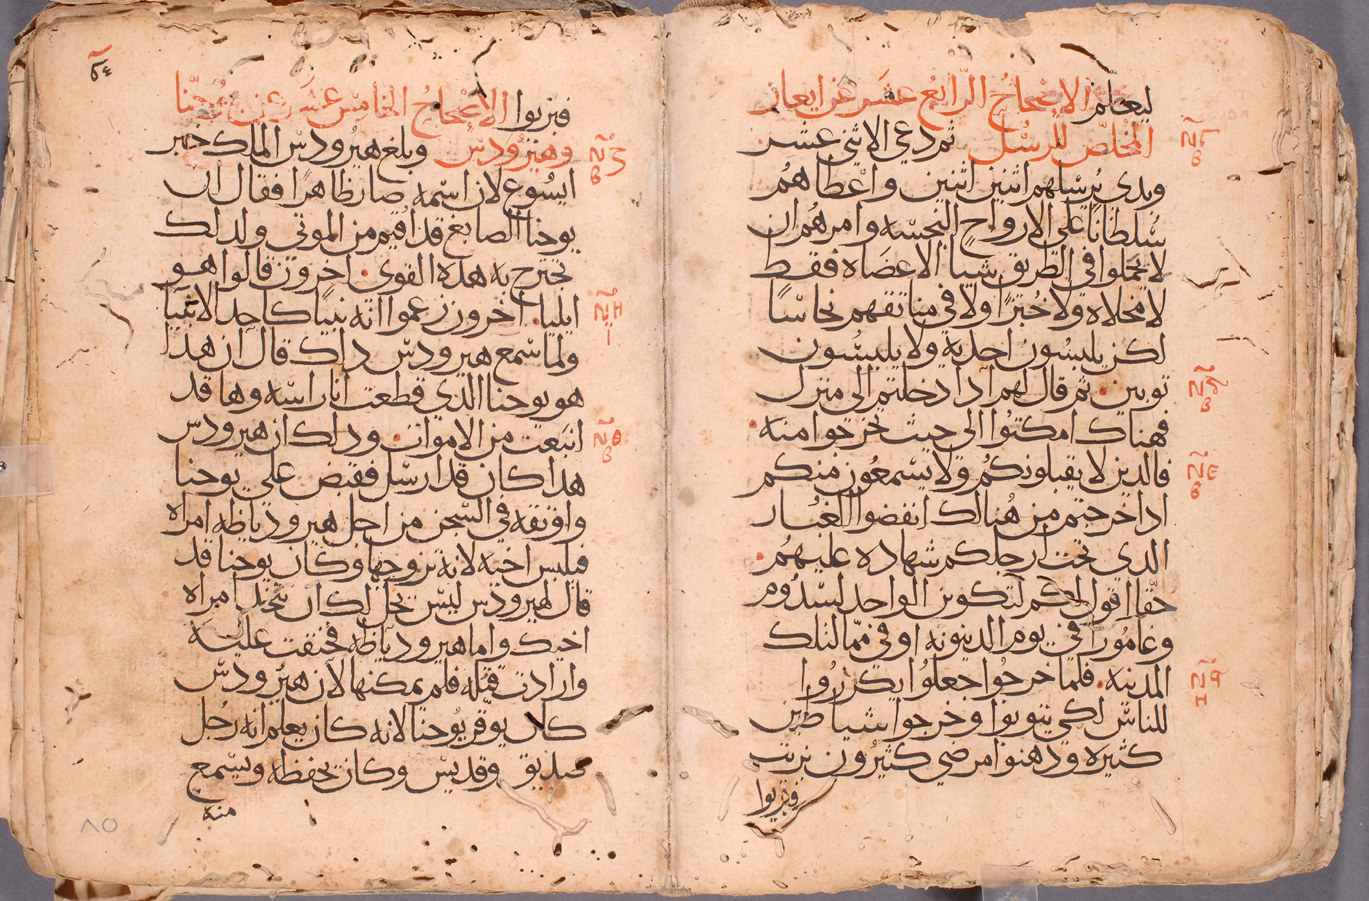 ليعلم الاصحاح الرابع عشر عن ايعاز
المخلص للرسل ثم دعي الاثني عشر
وبدي يرسلهم اثنين اثنين واعطاهم
سلطانا علي الارواح النجسه وامرهم ان
لا يحملوا في الطريق شيا الا عصاه فقط
لا مخلاه ولا خبزا ولا في مناتقهم نحاسا
لكن يلبسون احذيه ولا يلبسون
ثوبين. ثم قال لهم اذا دخلتم الي منزل
فهناك امكثوا الي حيث تخرجوا منه.
فالذين لا يقبلونكم ولا يسمعون منكم
اذا خرجتم من هنالك انفضوا الغبار
الذي تحت ارجلكم شهاده عليهم.
حقا اقول لكم لتكونن الواحد لسدوم
وغامورا في يوم الدينونه اوفي مما لتلك
المدينه. فلما خرجوا جعلوا يكرزوا
للناس لكي يتوبوا وخرجوا شياطين
كثيره ودهنوا مرضي كثيرون بزيت
فبريوا
فبريوا الاصحاح الخامس عشر عن يوحنا
وهيرودس وبلغ هيرودس الملك خبر
ايسوع لان اسمه صار ظاهرا فقال ان
يوحنا الصابغ قد اقيم من الموتي ولذلك
تخرج به هذه القوي. اخرون قالوا هو
ايليا. اخرون زعموا انه نبيا كاحد الانبيا
ولما سمع هيرودس ذلك قال ان هذا
هو يوحنا الذي قطعت انا راسه وها قد
انبعت من الاموات. وذلك ان هيرودس
هذا كان قد ارسل فقبض علي يوحنا
واوثقه في السجن من اجل هيروذياظه امراه
فيلبس اخيه لانه تزوجها وكان يوحنا قد
قال لهيرودس ليس يحل لك ان تتخذ امراه
اخيك واما هيروذياظه فحنقت عليه
وارادت قتله فلم يمكنها لان هيرودس
كان يوقر يوحنا لانه كان يعلم انه رجل
صديق وقديس وكان يحفظه ويسمع
منه
٨٥